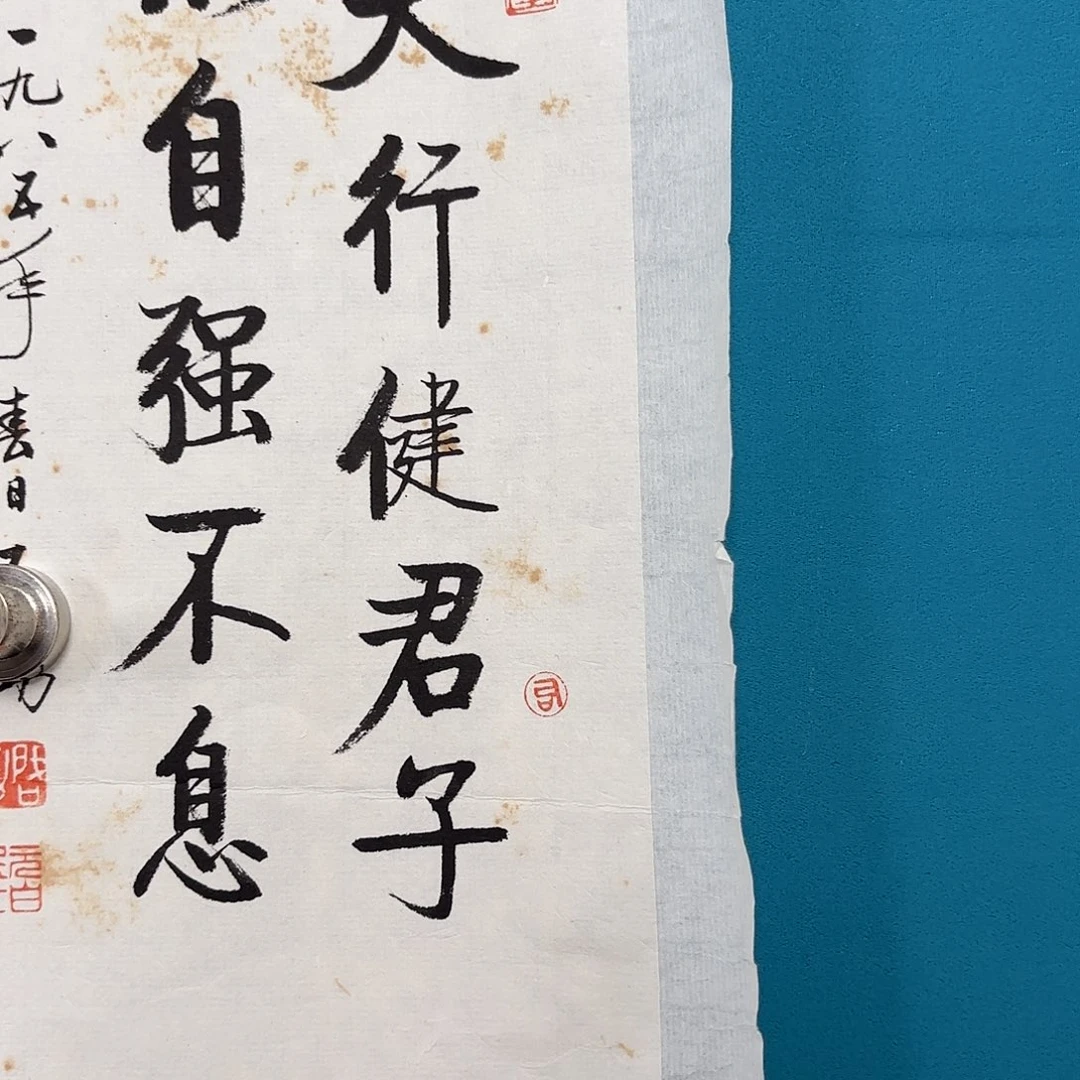 天行健君子
自强不息
一九八五年春日